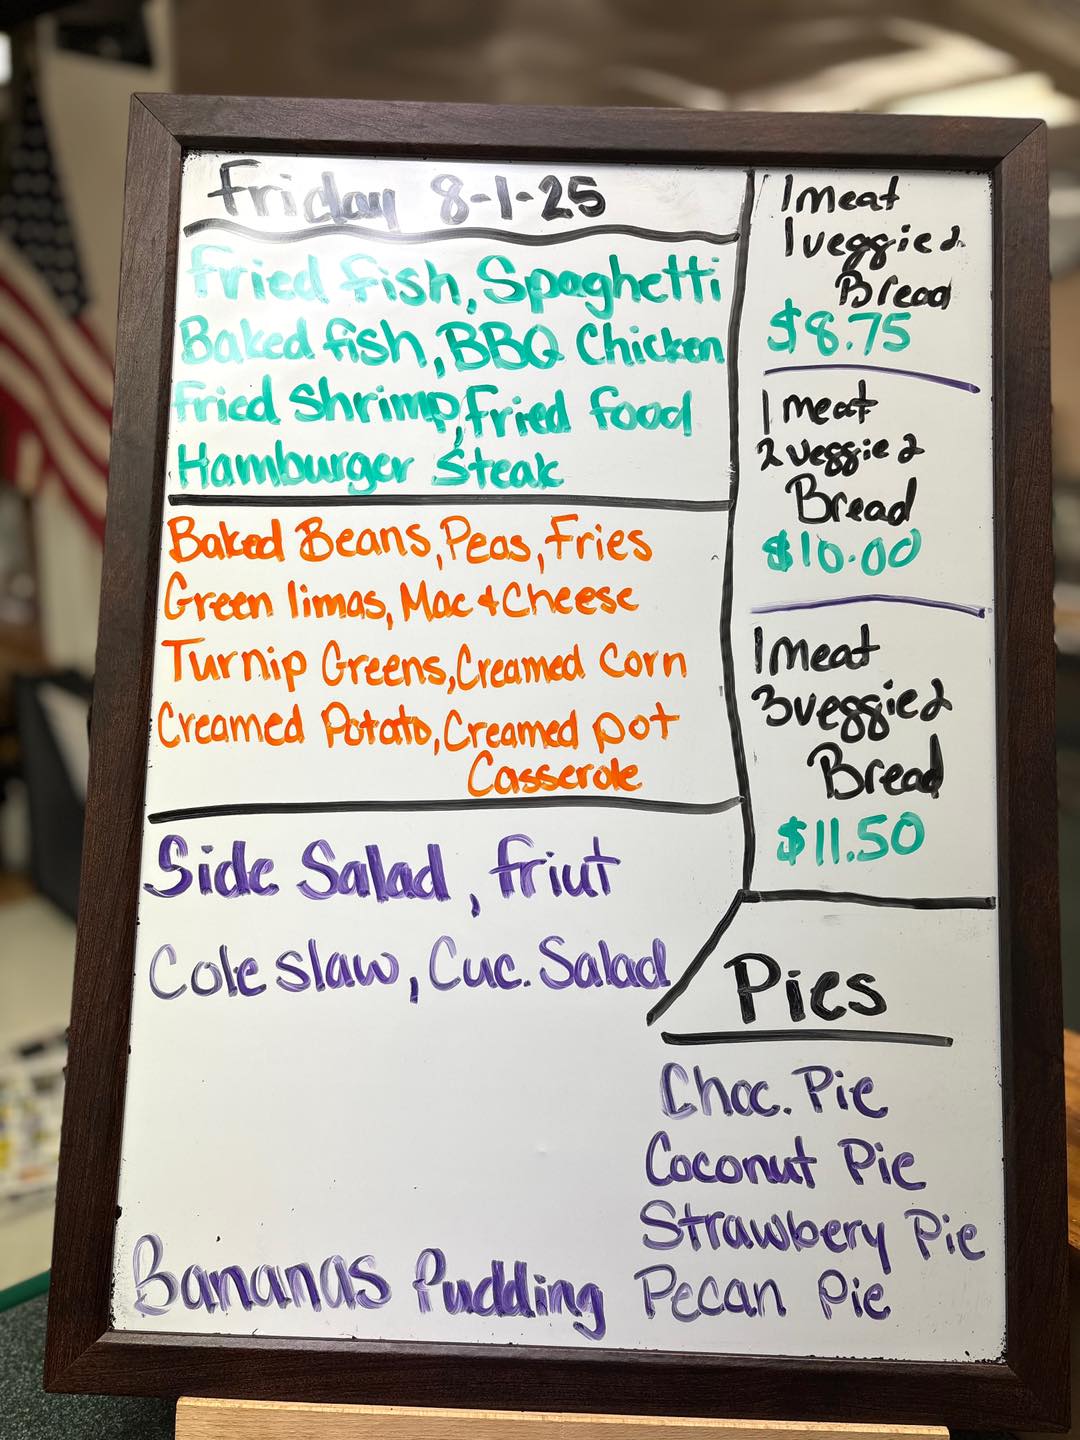 Friday 8-1-25
Fried fish, Spaghetti
Baked fish, BBQ Chicken
Fried Shrimp, Fried food
Hamburger Steak
Baked Beans, Peas, Fries
Green limas, Mac + Cheese
Turnip Greens, Creamed Corn
Creamed Potato, Creamed pot
Casserole
Side Salad, friut
Cole slaw, Cuc. Salad
Bananas Pudding
1 meat
1 veggie &
Bread
$8.75
1 meat
2 veggie &
Bread
$10.00
1 meat
3 veggie &
Bread
$11.50
Pies
Choc. Pie
Coconut Pie
Strawbery Pie
Pecan Pie